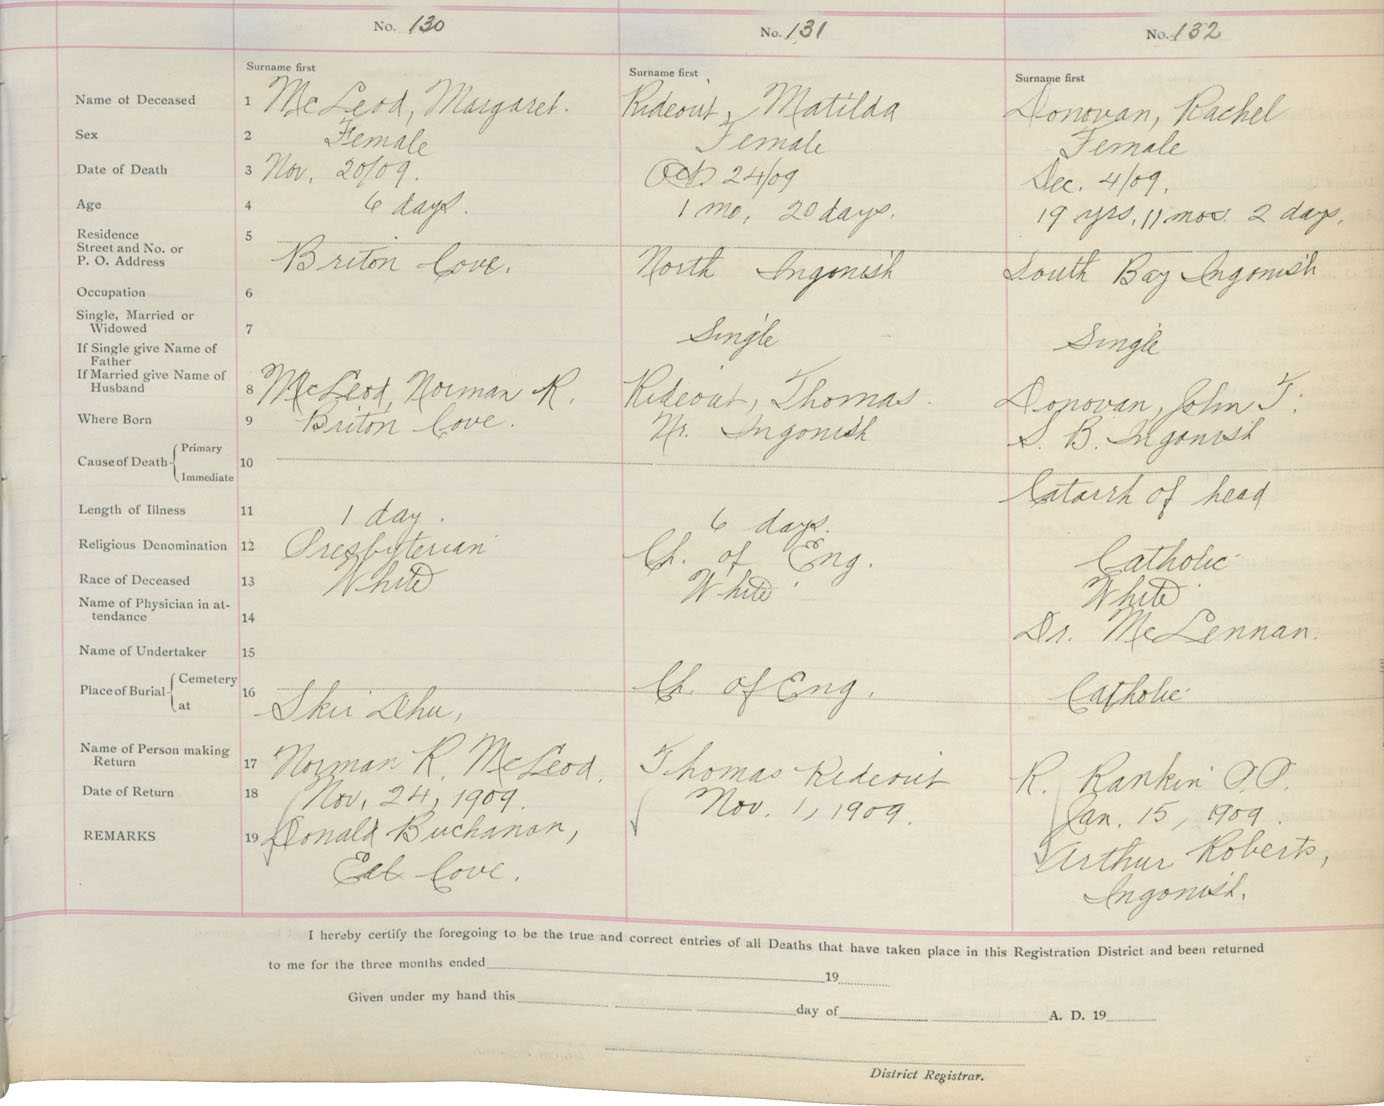 No. 130 No. 131 No. 132
Surname first Surname first Surname first
Name of Deceased 1 McLeod, Margaret. Rideout, Matilda Donovan, Rachel
Sex 2 Female Female Female
Date of Death 3 Nov. 20/09. Oct. 24/09 Dec. 4/09.
Age 4 6 days. 1 mo, 20 days. 19 yrs, 11 mos. 2 days,
Residence
Street and No. or
P. O. Address 5 Briton Cove. North Ingonish South Bay Ingonish
Occupation 6
Single, Married or
Widowed 7 Single Single
If Single give Name of
Father
If Married give Name of
Husband 8 McLeod, Norman R. Rideout, Thomas. Donovan, John T.
Where Born 9 Briton Cove. Nr. Ingonish S. B. Ingonish
Cause of Death Primary
Immediate 10 Catarrh of head
Length of Illness 11 1 day. 6 days.
Religious Denomination 12 Presbyterian Ch. of Eng. Catholic
Race of Deceased 13 White White White
Name of Physician in at-
tendance 14 Dr. McLennan.
Name of Undertaker 15
Place of Burial Cemetery
at 16 Skir Dhu, Ch. of Eng. Catholic
Name of Person making
Return 17 Norman R. McLeod. Thomas Rideout R. Rankin P.P.
Date of Return 18 Nov. 24, 1909. Nov. 1, 1909. Jan. 15, 1909.
REMARKS 19 Donald Buchanan, Arthur Roberts,
Eel Cove. Ingonish.
I hereby certify the foregoing to be the true and correct entries of all Deaths that have taken place in this Registration District and been returned
to me for the three months ended 19
Given under my hand this day of A. D. 19
District Registrar.